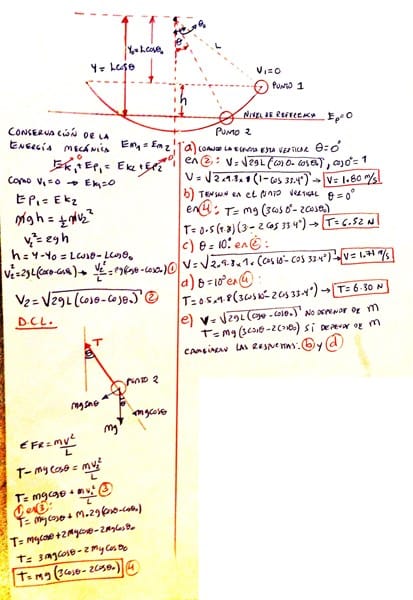 θ₀
θ
L
Y₀=Lcosθ₀
Y=Lcosθ
V₁=0
PUNTO 1
h
NIVEL DE REFERENCIA Ep=0
PUNTO 2
CONSERVACIÓN DE LA
ENERGÍA MECÁNICA Em₁=Em₂
Ek₁+Ep₁=Ek₂+Ep₂
COMO V₁=0 → Ek₁=0
Ep₁=Ek₂
mgh=½mV₂²
V₂²=2gh
h=Y-Y₀=Lcosθ-Lcosθ₀
V₂²=2gL(cosθ-cosθ₀) → V₂²/L=2g(cosθ-cosθ₀) ①
V₂=√2gL(cosθ-cosθ₀) ②
D.C.L.
T
θ
PUNTO 2
θ
mgsenθ
mgcosθ
mg
ΣFR=mV²/L
T-mgcosθ=mV₂²/L
T=mgcosθ+mV₂²/L ③
① en ③:
T=mgcosθ+m.2g(cosθ-cosθ₀)
T=mgcosθ+2mgcosθ-2mgcosθ₀
T=3mgcosθ-2mgcosθ₀
T=mg(3cosθ-2cosθ₀) ④
a) CUANDO LA ESTA VERTICAL θ=0°
en ②: V=√2gL(cos0-cosθ₀), cos0°=1
V=√2.9.8.1(1-cos33.4°) → V=1.80 m/s
b) TENSION EN EL PUNTO VERTICAL θ=0°
en ④: T=mg(3cos0°-2cosθ₀)
T=0.5(9.8)(3-2cos33.4°) → T=6.52 N
c) θ=10° en ②:
V=√2.9.8.1.(cos10°-cos33.4°) → V=1.71 m/s
d) θ=10° en ④:
T=0.5.9.8(3cos10°-2cos33.4°) → T=6.30 N
e) V=√2gL(cosθ-cosθ₀) NO DEPENDE DE m
T=mg(3cosθ-2cosθ₀) SÍ DEPENDE DE m
CAMBIARÍAN LAS RESPUESTAS: b y d